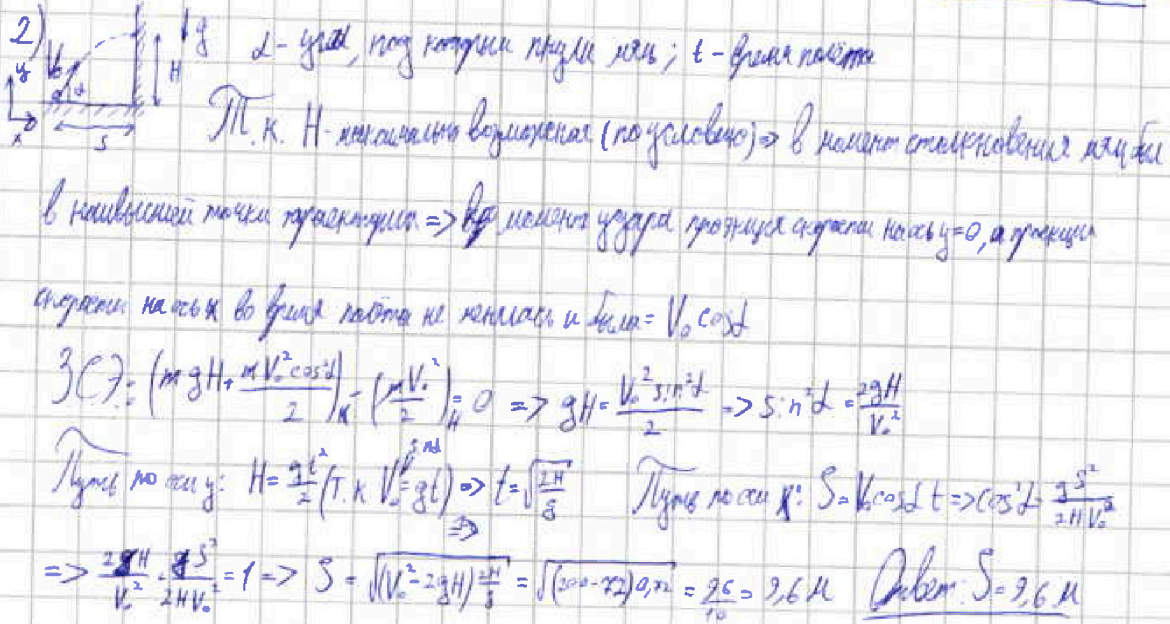 2) V₀ α y x S H g α - угол, под которым пнули мяч; t - время полёта
Т.к. H - максимально возможная (по условию) => в момент столкновения мяч был
в наивысшей точки траектории => в момент удара проекция скорости на ось y = 0, а проекция
скорости на ось x во время полёта не менялась и была = V₀ cosα
ЗСЭ: (mgH + mV₀²cos²α/2)к - (mV₀²/2)н = 0 => gH = V₀² sin²α/2 => sin²α = 2gH/V₀²
Путь по оси y: H = gt²/2 (т.к V₀ sinα = gt) => t = √(2H/g) Путь по оси x: S = V₀cosα t => cos²α = gS²/2HV₀²
=> 2gH/V₀² + gS²/2HV₀² = 1 => S = √((V₀² - 2gH) 2H/g) = √((200-72)0,72) = 96/10 = 9,6 м Ответ: S = 9,6 м